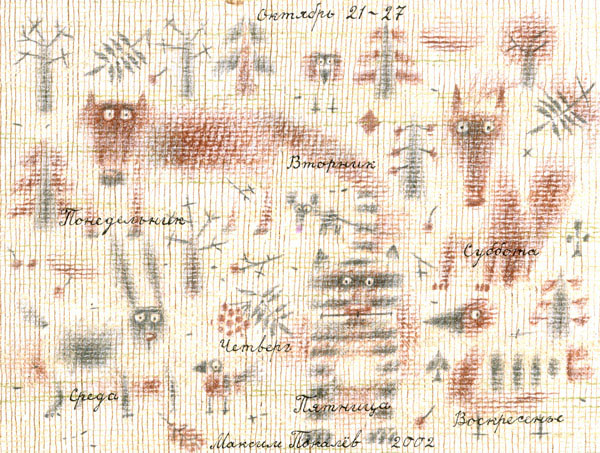 Октябрь 21-27
Вторник
Понедельник
Суббота
Четверг
Среда
Пятница
Воскресенье
Максим 2002